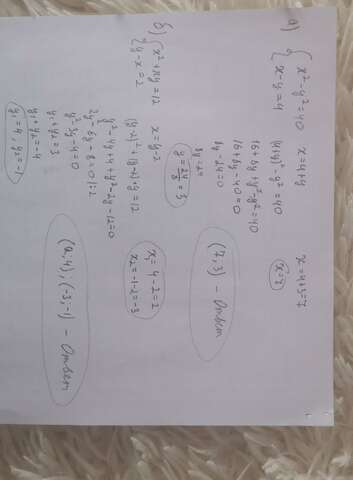 а) { x²-y²=40
x-y=4
x=4+y
(4+y)²-y²=40
16+8y+y²-y²=40
16+8y-40=0
8y-24=0
8y=24
y=24/8=3
x=4+3=7
x=7
(7,3) - Ответ
б) { x²+xy=12
y-x=2
x=y-2
(y-2)²+(y-2)y=12
y²-4y+4+y²-2y-12=0
2y²-6y-8=0 |:2
y²-3y-4=0
y₁+y₂=3
y₁·y₂=-4
y₁=4, y₂=-1
x₁=4-2=2
x₂=-1-2=-3
(2,4), (-3,-1) - Ответ